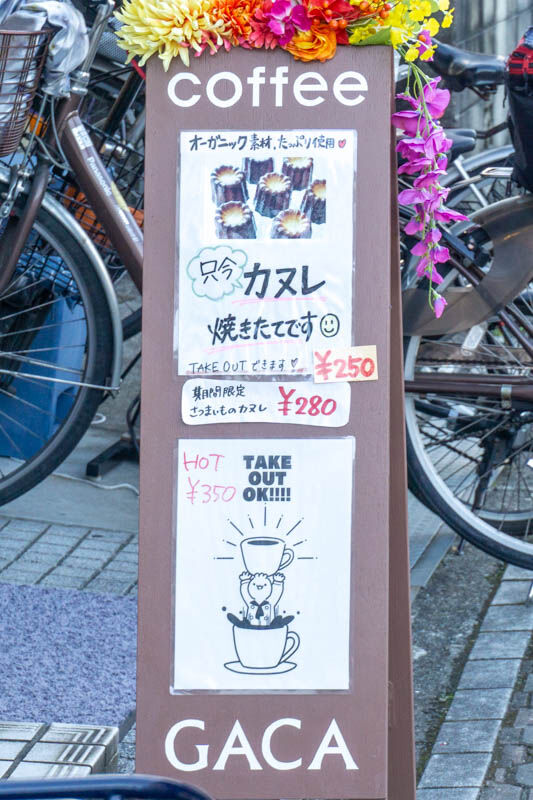 coffee
オーガニック素材、たっぷり使用♥
只今 カヌレ
焼きたてです☺
TAKE OUT できます♡ ¥250
期間限定
さつまいものカヌレ ¥280
HOT
¥350
TAKE
OUT
OK!!!!
GACA
Panasonic